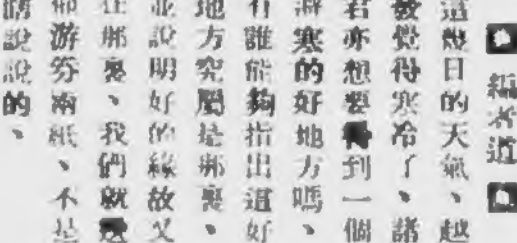 編者道
這幾日的天氣、越
發覺得寒冷了、諸
君亦想要得到一個
避寒的好地方嗎、
有誰能夠指出這好
地方究屬是那裏、
並說明好的緣故又
在那裏、我們就送
他游券兩紙、不是
瞎說說的、